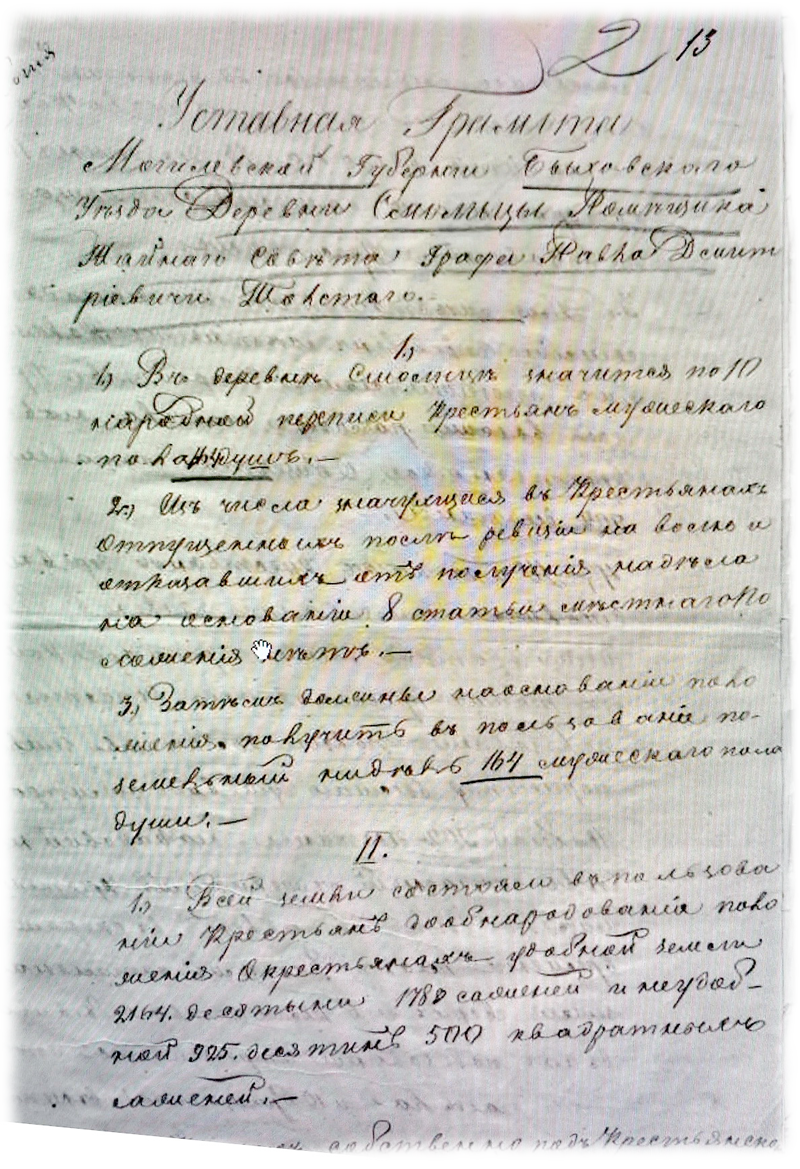 2 13
Уставная Грамита
Могилевской Губернии Быховскаго
Уѣзда Деревни Помѣщика
Тайнаго Совѣта Графа Павла Дмит
ріевича Толстаго.
1.,
1.) Въ деревнѣ Смолицѣ значится по 10
народной переписи Крестьянъ мужескаго
пола душъ.—
2.) Изъ числа значущихся въ Крестьянахъ
отпущенныхъ послѣ ревизіи на волю и
отказавшихъ отъ полученія надѣла
на основаніи 8 статьи мѣстнаго По
ложенія нѣтъ.—
3.) Затѣмъ должны наоснованіи поло
женія получить въ пользованіе по-
земельный надѣлъ 164 мужескаго пола
души.—
II.
1.) Всей земли состояло въ пользова
ніи Крестьянъ дообнародованія поло
женія Окрестьянахъ удобной земли
2164. десятины 1780 саженей и неудоб-
ной 925. десятинъ 500 квадратныхъ
саженей.—
собственно подъ Крестьянско